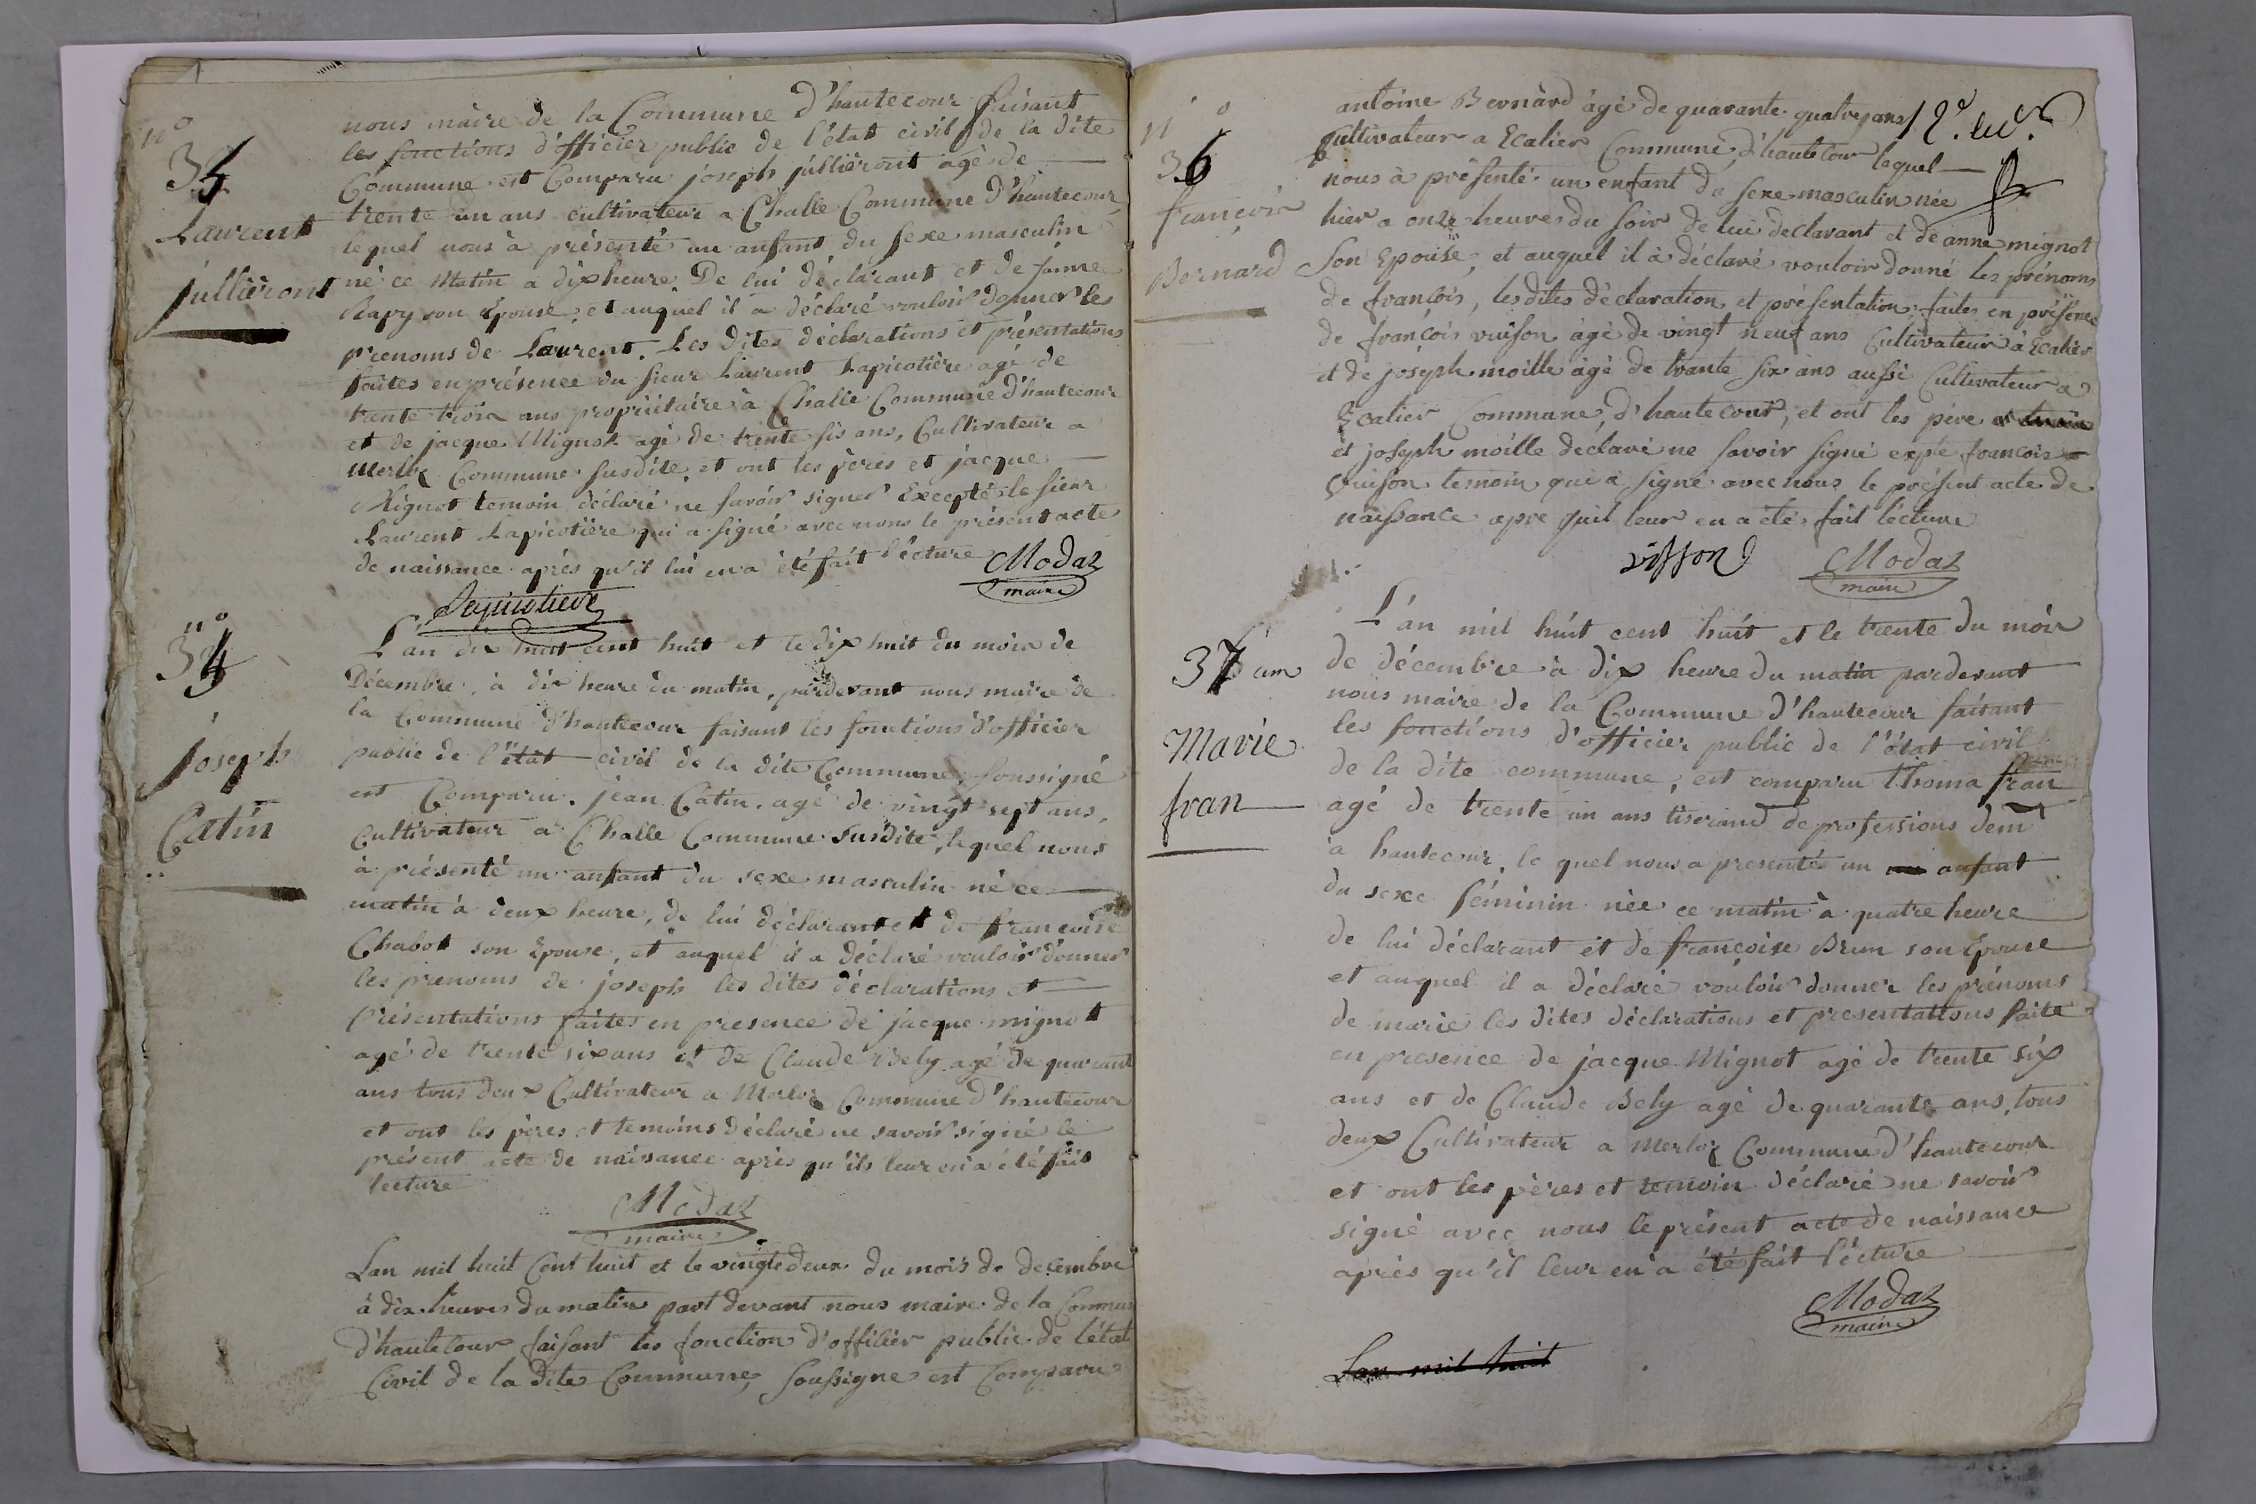 nous maire de la Commune d'hautecour faisant
les fonctions d'officier public de l'état civil de la dite
Commune est Comparu joseph jullièront agé de
trente un ans cultivateur a Challe Commune d'hautecour
lequel nous à présenté un anfant du sexe masculin
né ce Matin a dix heure. De lui déclarant et de
son Epouse, et auquel il a déclaré vouloir donner les
prenoms de Laurent. Les dites déclarations et présentations
faites en présence du sieur Laurent Lapicotière agé de
trente trois ans propriétaire à Challe Commune d'hautecour
et de jacque Mignot agé de trente sis ans, Cultivateur a
Merloz Commune susdite, et ont les pères et jacque
Mignot temoin déclaré ne savoir signer Excepté le sieur
Laurent Lapicotière qui a signé avec nous le présent acte
de naissance après qu'il lui en a été fait l'écture
Modaz
maire
Lapicotiere
n°
Laurent
jullièront
n°
34
joseph
Catin
L'an dix huit cent huit et le dix huit du mois de
Décembre, à dix heure du matin, pardevant nous maire de
la Commune d'hautecour faisant les fonctions d'officier
public de l'état civil de la dite Commune soussigné
est Comparu. jean Catin. agé de vingt sept ans,
cultivateur a Challe Commune susdite, lequel nous
à présenté un anfant du sexe masculin né ce
matin à deux heure, de lui déclarant et de francoise
Chabot son Epouse, et auquel il a déclaré vouloir donner
les prenoms de joseph les dites déclarations et
présentations faites en presence de jacque mignot
agé de trente six ans et de Claude Bely agé de quarant
ans tous deux Cultivateur a Merloz Commune d'hautecour
et ont les pères et temoins déclaré ne savoir signé le
présent acte de naisance après qu'ils leur en a été fait
lecture
Modaz
maire
Lan mil huit Cent huit et le vingt deux du mois de decembre
à dix heures du matin part devant nous maire de la Commun
d'hautecour faisant les fonction d'officier public de létat
Civil de la dite Commune, soussigne est Comparu
n°
36
françois
Bernard
antoine Bernard âgé de quarante quatre ans
Cultivateur a Ecalier Commune d'hautecour lequel
nous à présenté un enfant de sexe masculin née
hier a onze heure du soir de lui declarant et de anne mignot
son Epouse, et auquel il à déclaré vouloir donné les prénoms
de françois, les dites déclaration et présentation faites en présence
de françois vuison âgé de vingt neuf ans Cultivateur à Ecalier
et de joseph moille âgé de trante six ans aussi Cultivateur a
Ecalier Commune d'hautecour, et ont les père
et joseph moille declaré ne savoir signé expté francois
vuison temoin qui a signé avec nous le présent acte de
naissance apre quil leur en a été fait lécture
visson Modaz
maire
37
Marie
fran
L'an mil huit cent huit et le trente du mois
de décembre à dix heure du matin pardevant
nous maire de la Commune d'hautecour faisant
les fonctions d'officier public de l'état civil
de la dite commune, est comparu thoma fran
agé de trente un ans tiserand de professions dem
à hautecour, le quel nous a presenté un anfant
du sexe féminin née ce matin à quatre heure
de lui déclarant et de françoise Brun son Epouse
et auquel il a déclaré vouloir donner les prénoms
de marie les dites déclarations et presentations faite
en presence de jacque Mignot agé de trente six
ans et de Claude Bely agé de quarante ans, tous
deux Cultivateur a Merloz Commune d'hautecour
et ont les pères et temoin déclaré ne savoir
signé avec nous le présent acte de naissance
après qu'il leur en a été fait l'écture
Modaz
maire
Lan mil huit